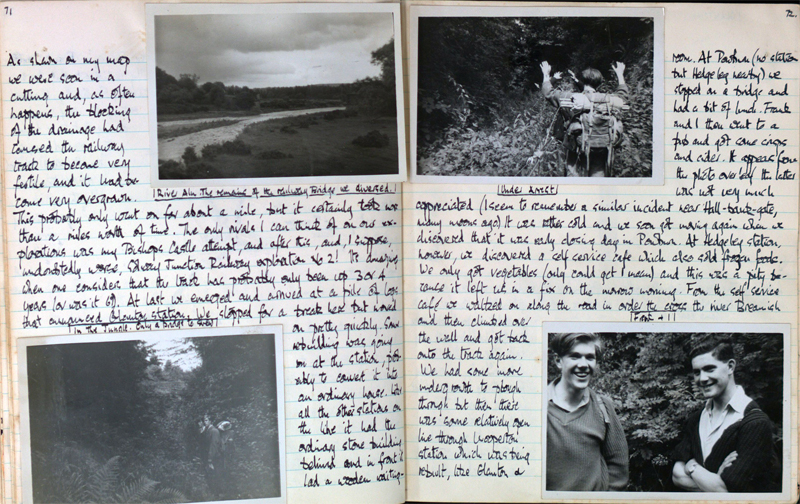 71
As shown on my map
we were soon in a
cutting and, as often
happens, the blocking
of the drainage had
caused the railway
track to become very
fertile, and it had be-
come very overgrown.
River Aln. The remains of the railway bridge we diversed.
This probably only went on for about a mile, but it certainly took us
than a miles worth of time. The only rivals I can think of on our ex-
plorations was my Bishops Castle attempt, and after this, and, I suppose,
undoubtedly worse, Solway Junction Railway exploration No 2! It's amazing
when one considers that the track has probably only been up 3 or 4
years (or was it 6?). At last we emerged and arrived at a pile of logs
that announced Glanton station. We stopped for a break here but moved
In the Tunnel. Only a bridge to
on pretty quickly. Some
rebuilding was going
on at the station, pos-
sibly to convert it into
an ordinary house. Like
all the other stations on
the line it had the
ordinary stone building
behind and in front it
had a wooden waiting-
72.
room. At Powburn (no station
but Hedgeley nearby) we
stopped on a bridge and
had a bit of lunch. Frank
and I then went to a
pub and got some crisps
and cider. It appears from
the photo overleaf the latter
was not very much
Under Arrest
appreciated (I seem to remember a similar incident near
many moons ago) It was rather cold and we soon got moving again when we
discovered that it was early closing day in Powburn. At Hedgeley station,
however, we discovered a self service cafe which also sold frozen foods.
We only got vegetables (only could get I mean) and this was a pity be-
cause it left us in a fix on the morrow morning. From the self service
cafe we waltzed on along the road in order to cross the river Breamish
and then climbed over
the wall and got back
onto the track again.
We had some more
undergrowth to plough
through but then there
was some relatively open
line through Wooperton
station which was being
rebuilt, like Glanton &
Frank + I